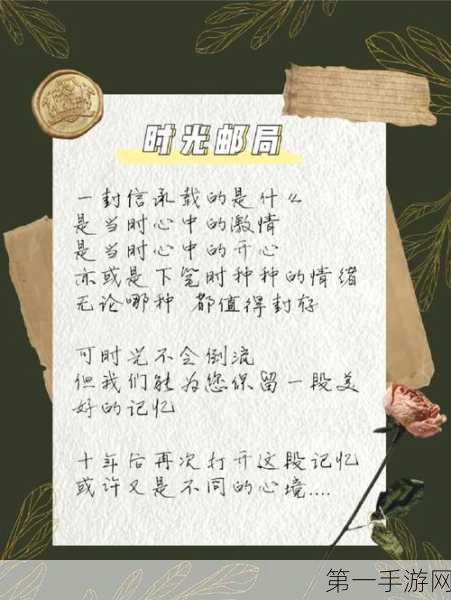 时光邮局
一封信承载的是什么
是当时心中的激情
是当时心中的开心
亦或是下笔时种种的情绪
无论哪种 都值得封存
可时光不会倒流
但我们能为您保留一段美
好的记忆
十年后再次打开这段记忆
或许又是不同的心境....
第一手游网